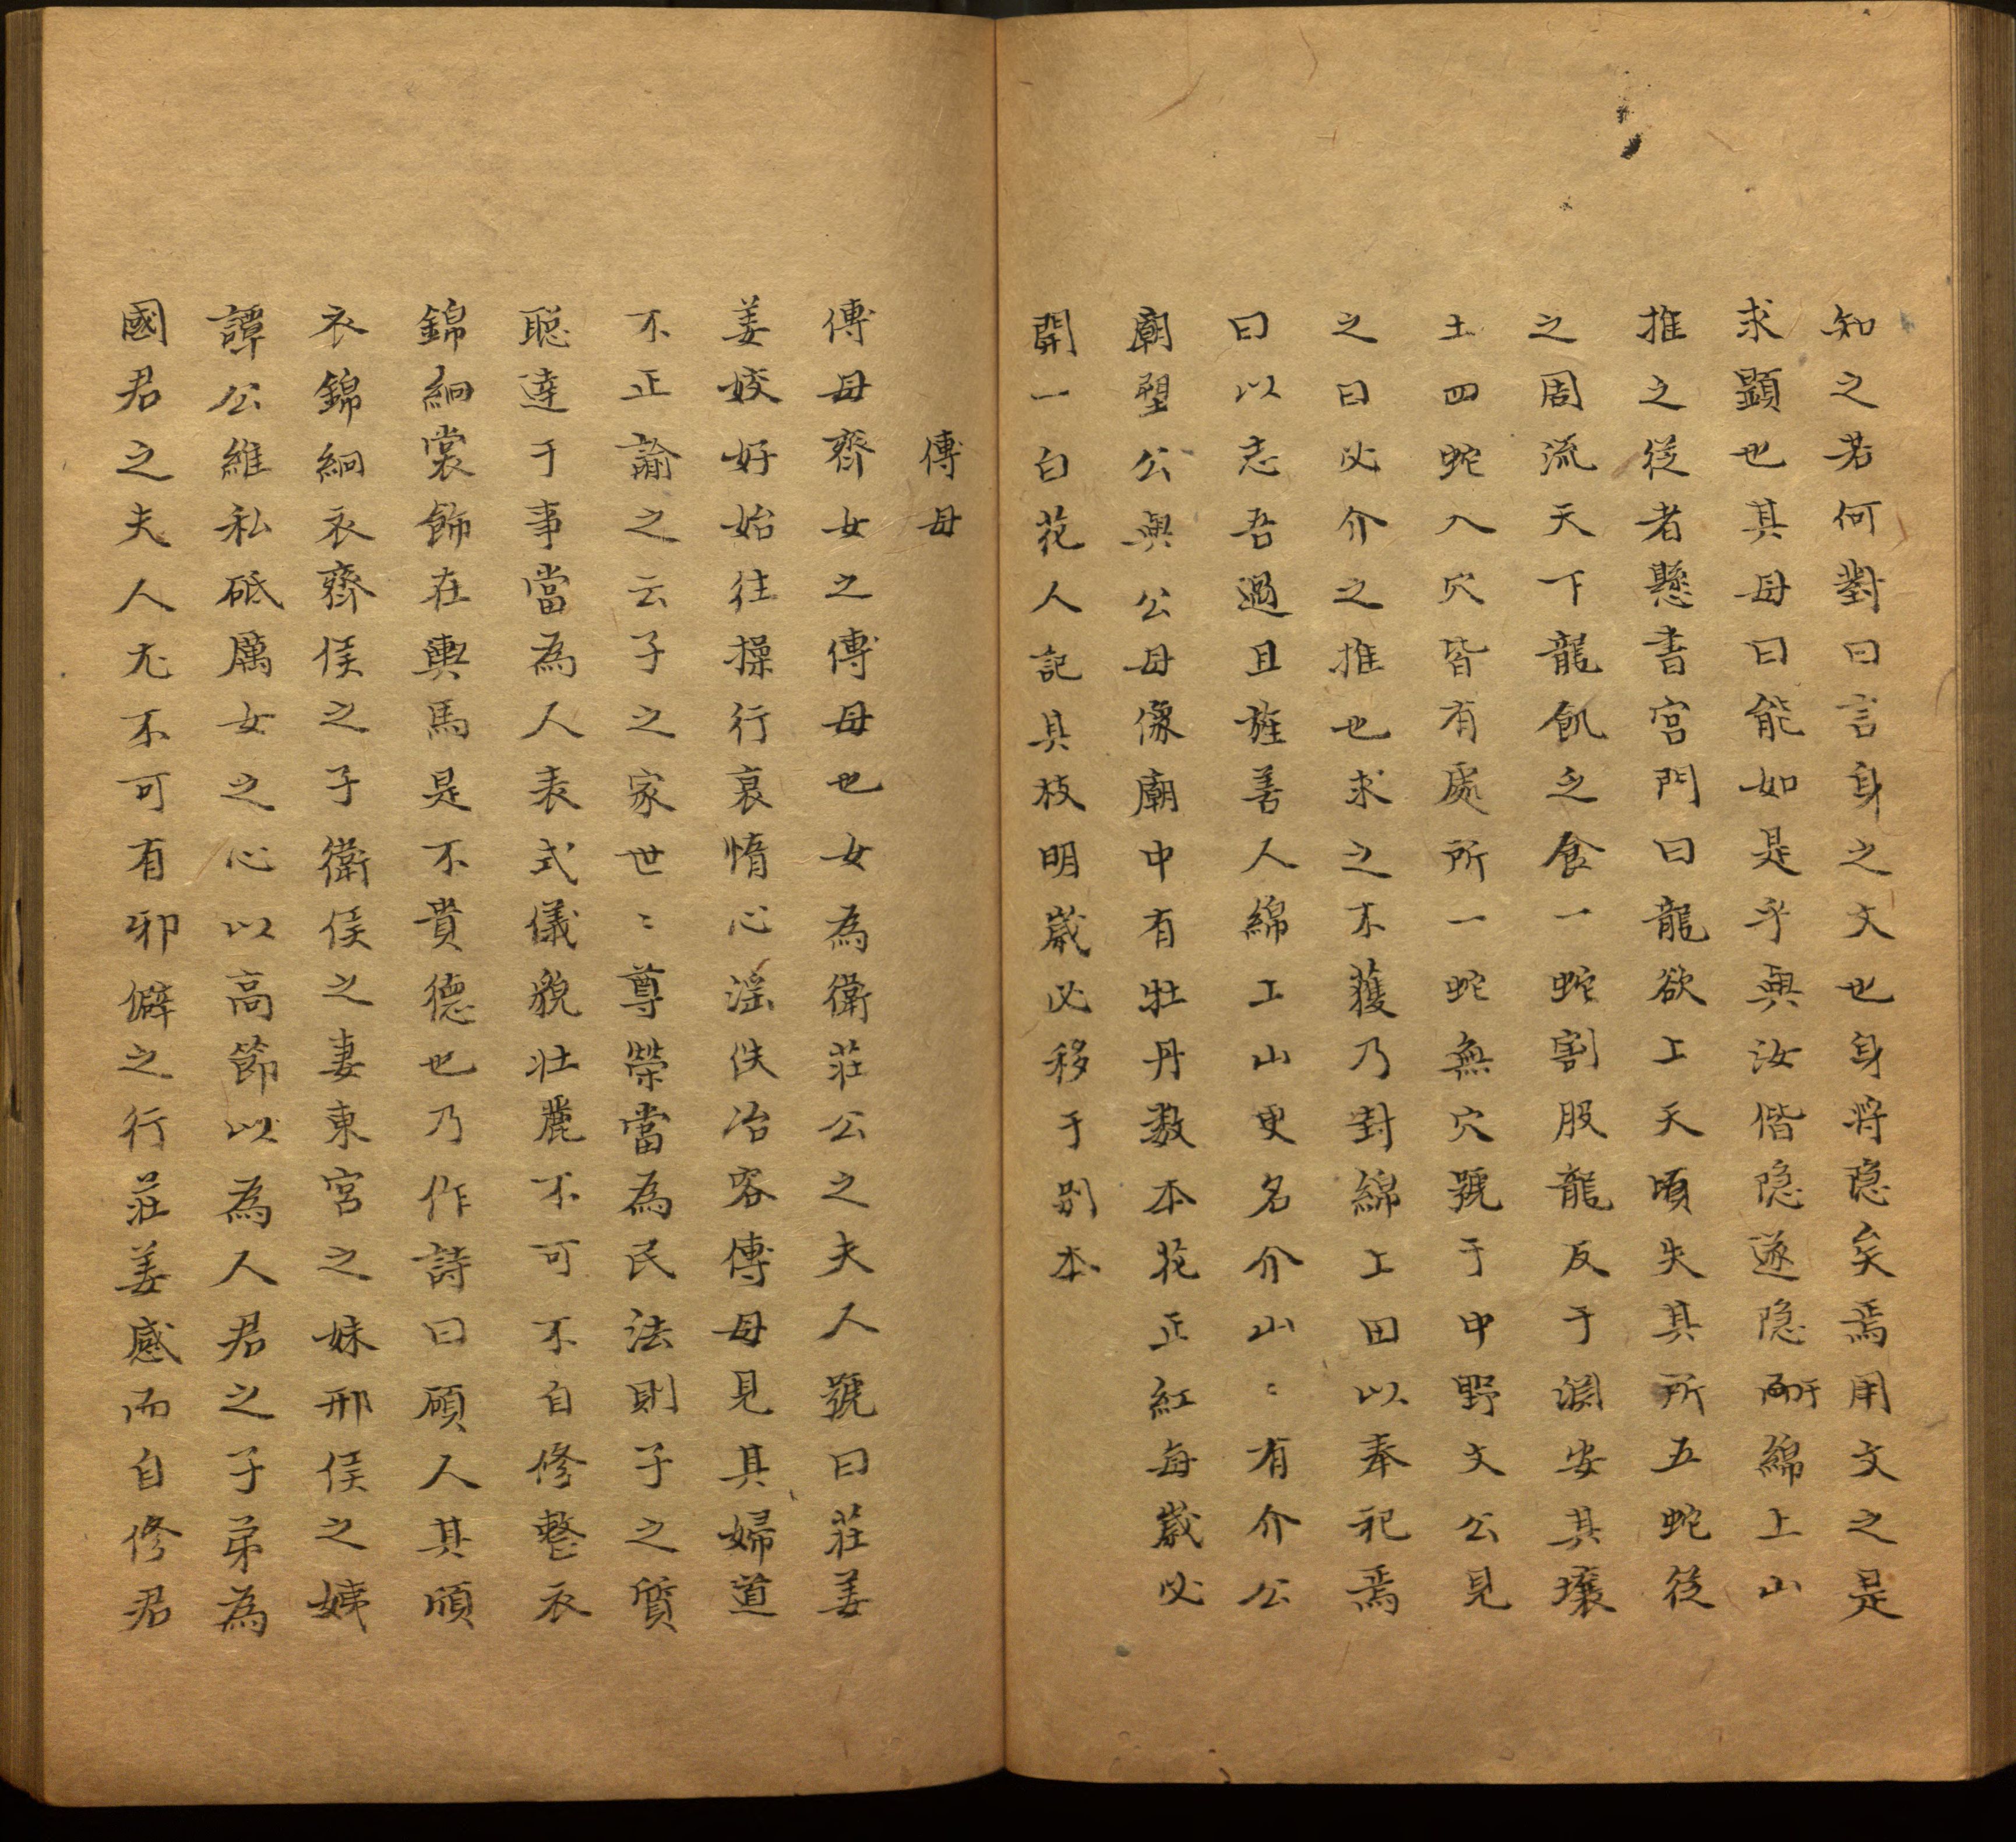 知之若何對曰言身之文也身將隱矣焉用文之是
求顯也其母曰能如是乎與汝偕隱遂隱而于綿上山
推之從者懸書宮門曰龍欲上天頃失其所五蛇從
之周流天下龍飢乏食一蛇割股龍反于淵安其壤
土四蛇入穴皆有處所一蛇無穴號于中野文公見
之曰必介之推也求之不獲乃封綿上田以奉祀焉
曰以志吾過且旌善人綿上山更名介山〻有介公
廟塑公與公母像廟中有牡丹數本花正紅每歲必
開一白花人記其枝明歲必移于別本
傅母
傅母齊女之傅母也女為衛莊公之夫人號曰莊姜
姜姣好始往操行衰惰心淫佚冶容傅母見其婦道
不正諭之云子之家世〻尊榮當為民法則子之質
聰達于事當為人表式儀貌壯麗不可不自修整衣
錦絅裳飾在輿馬是不貴德也乃作詩曰碩人其頎
衣錦絅衣齊侯之子衛侯之妻東宮之妹邢侯之姨
譚公維私砥厲女之心以高節以為人君之子弟為
國君之夫人尤不可有邪僻之行莊姜感而自修君